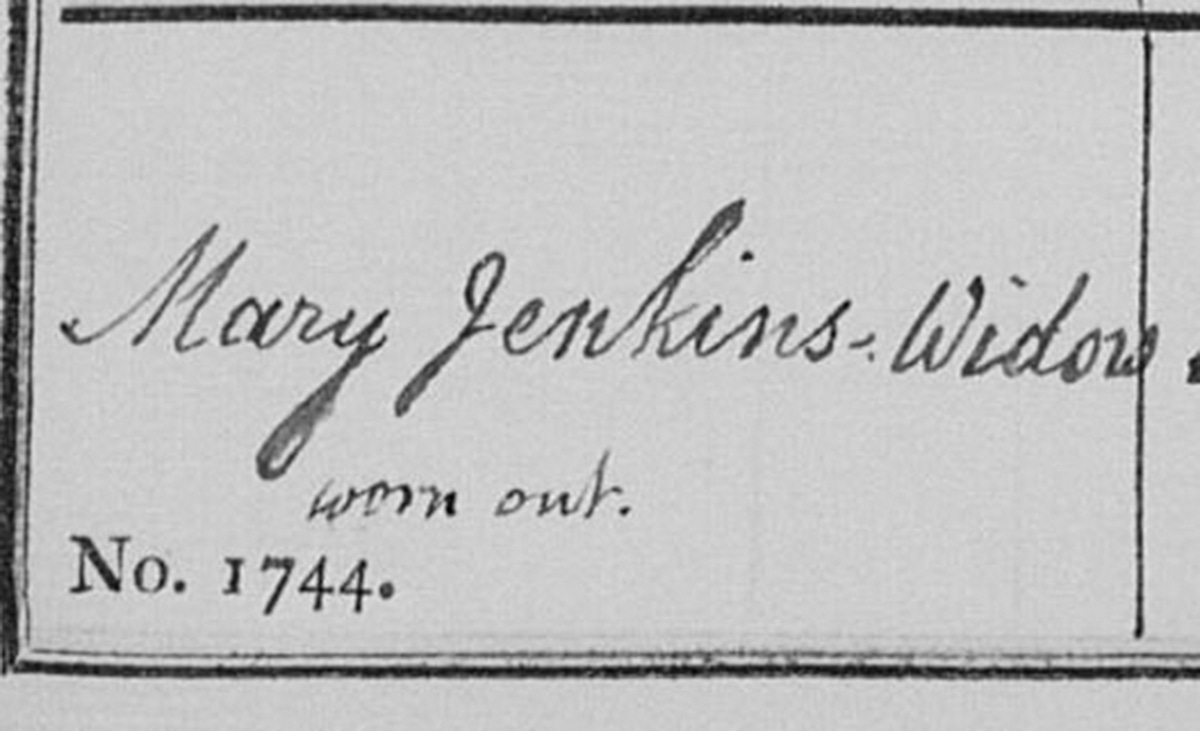 Mary Jenkins - Widow
worn out.
No. 1744.